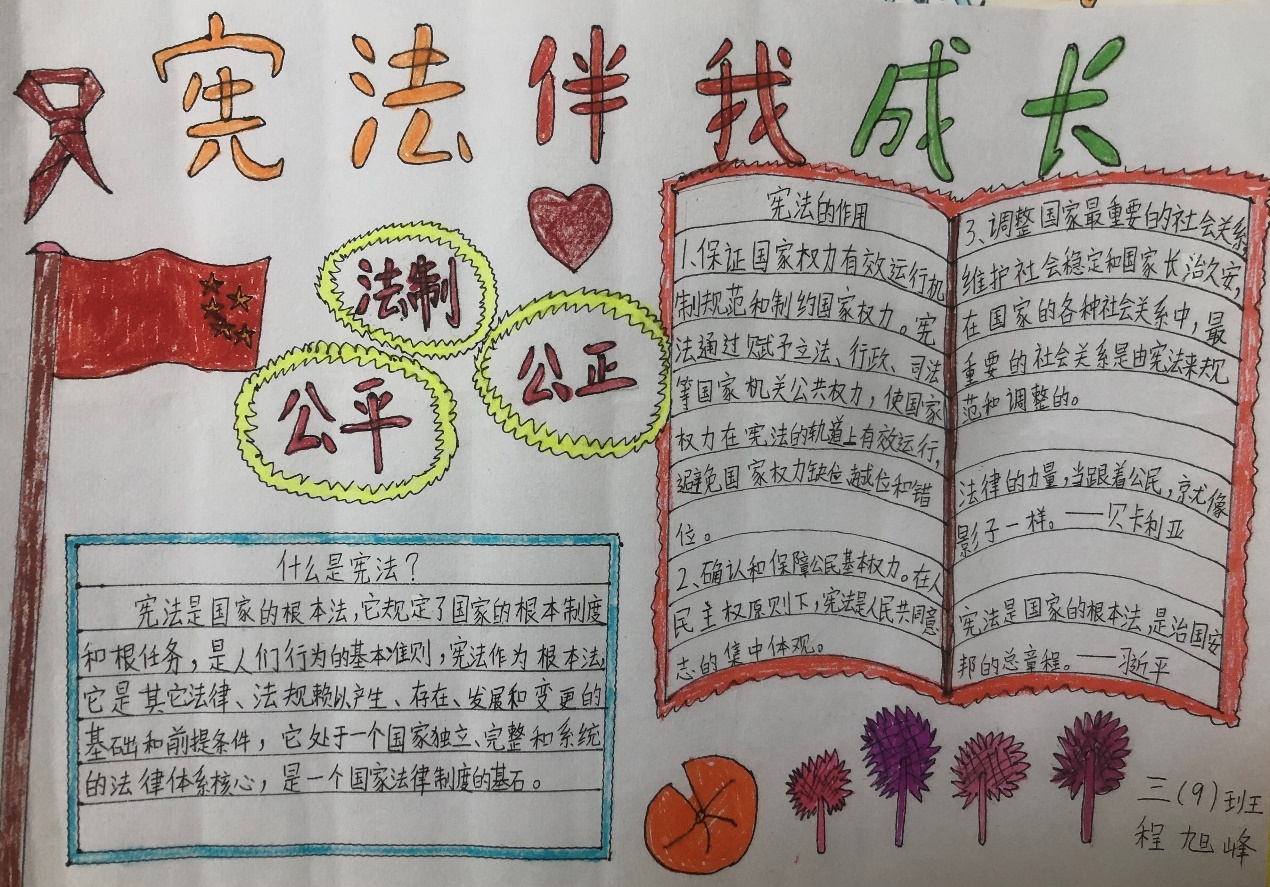 宪法伴我成长
法制
公正
公平
什么是宪法？
宪法是国家的根本法，它规定了国家的根本制度
和根任务，是人们行为的基本准则，宪法作为根本法，
它是其它法律、法规赖以产生、存在、发展和变更的
基础和前提条件，它处于一个国家独立、完整和系统
的法律体系核心，是一个国家法律制度的基石。
宪法的作用
1、保证国家权力有效运行机
制规范和制约国家权力。宪
法通过赋予立法、行政、司法
等国家机关公共权力，使国家
权力在宪法的轨道上有效运行，
避免国家权力缺位、越位和错
位。
2、确认和保障公民基本权力。在人
民主权原则下，宪法是人民共同意
志的集中体观。
3、调整国家最重要的社会关系
维护社会稳定和国家长治久安，
在国家的各种社会关系中，最
重要的社会关系是由宪法来规
范和调整的。
法律的力量，当跟着公民，京尤像
影子一样。——贝卡利亚
宪法是国家的根本法，是治国安
邦的总章程。——习近平
三(9)班
程旭峰